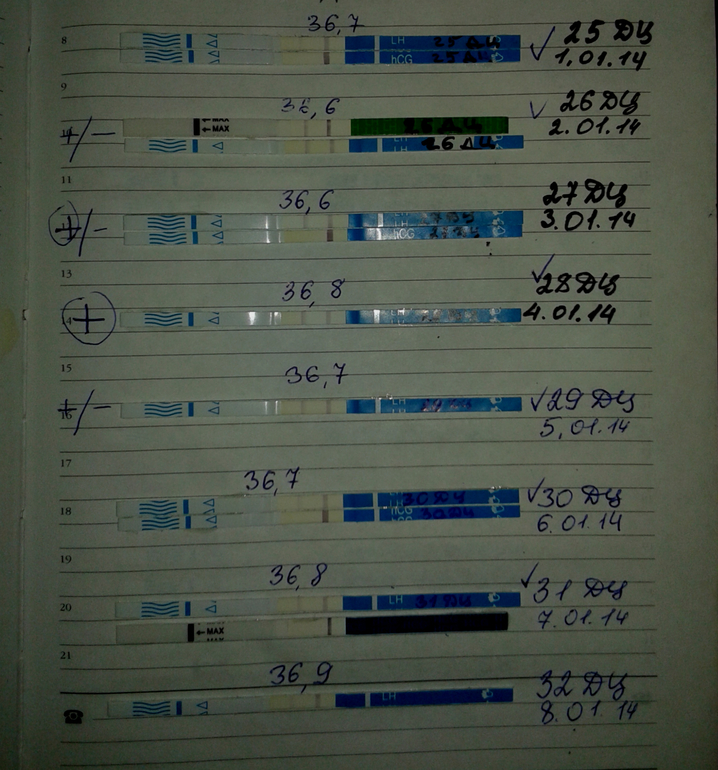 36,7
8
LH 25 ДЦ
hCG 25 ДЦ
25 ДЦ
1.01.14
9
36,6
MAX
26 ДЦ
26 ДЦ
+/-
26 ДЦ
2.01.14
11
36,6
+/-
hCG
27 ДЦ
3.01.14
13
36,8
+
28 ДЦ
4.01.14
15
36,7
+/-
16
29 ДЦ
5.01.14
17
36,7
18
30 ДЦ
hCG 30 ДЦ
30 ДЦ
6.01.14
19
36,8
20
LH 31 ДЦ
MAX
31 ДЦ
7.01.14
21
36,9
LH
32 ДЦ
8.01.14